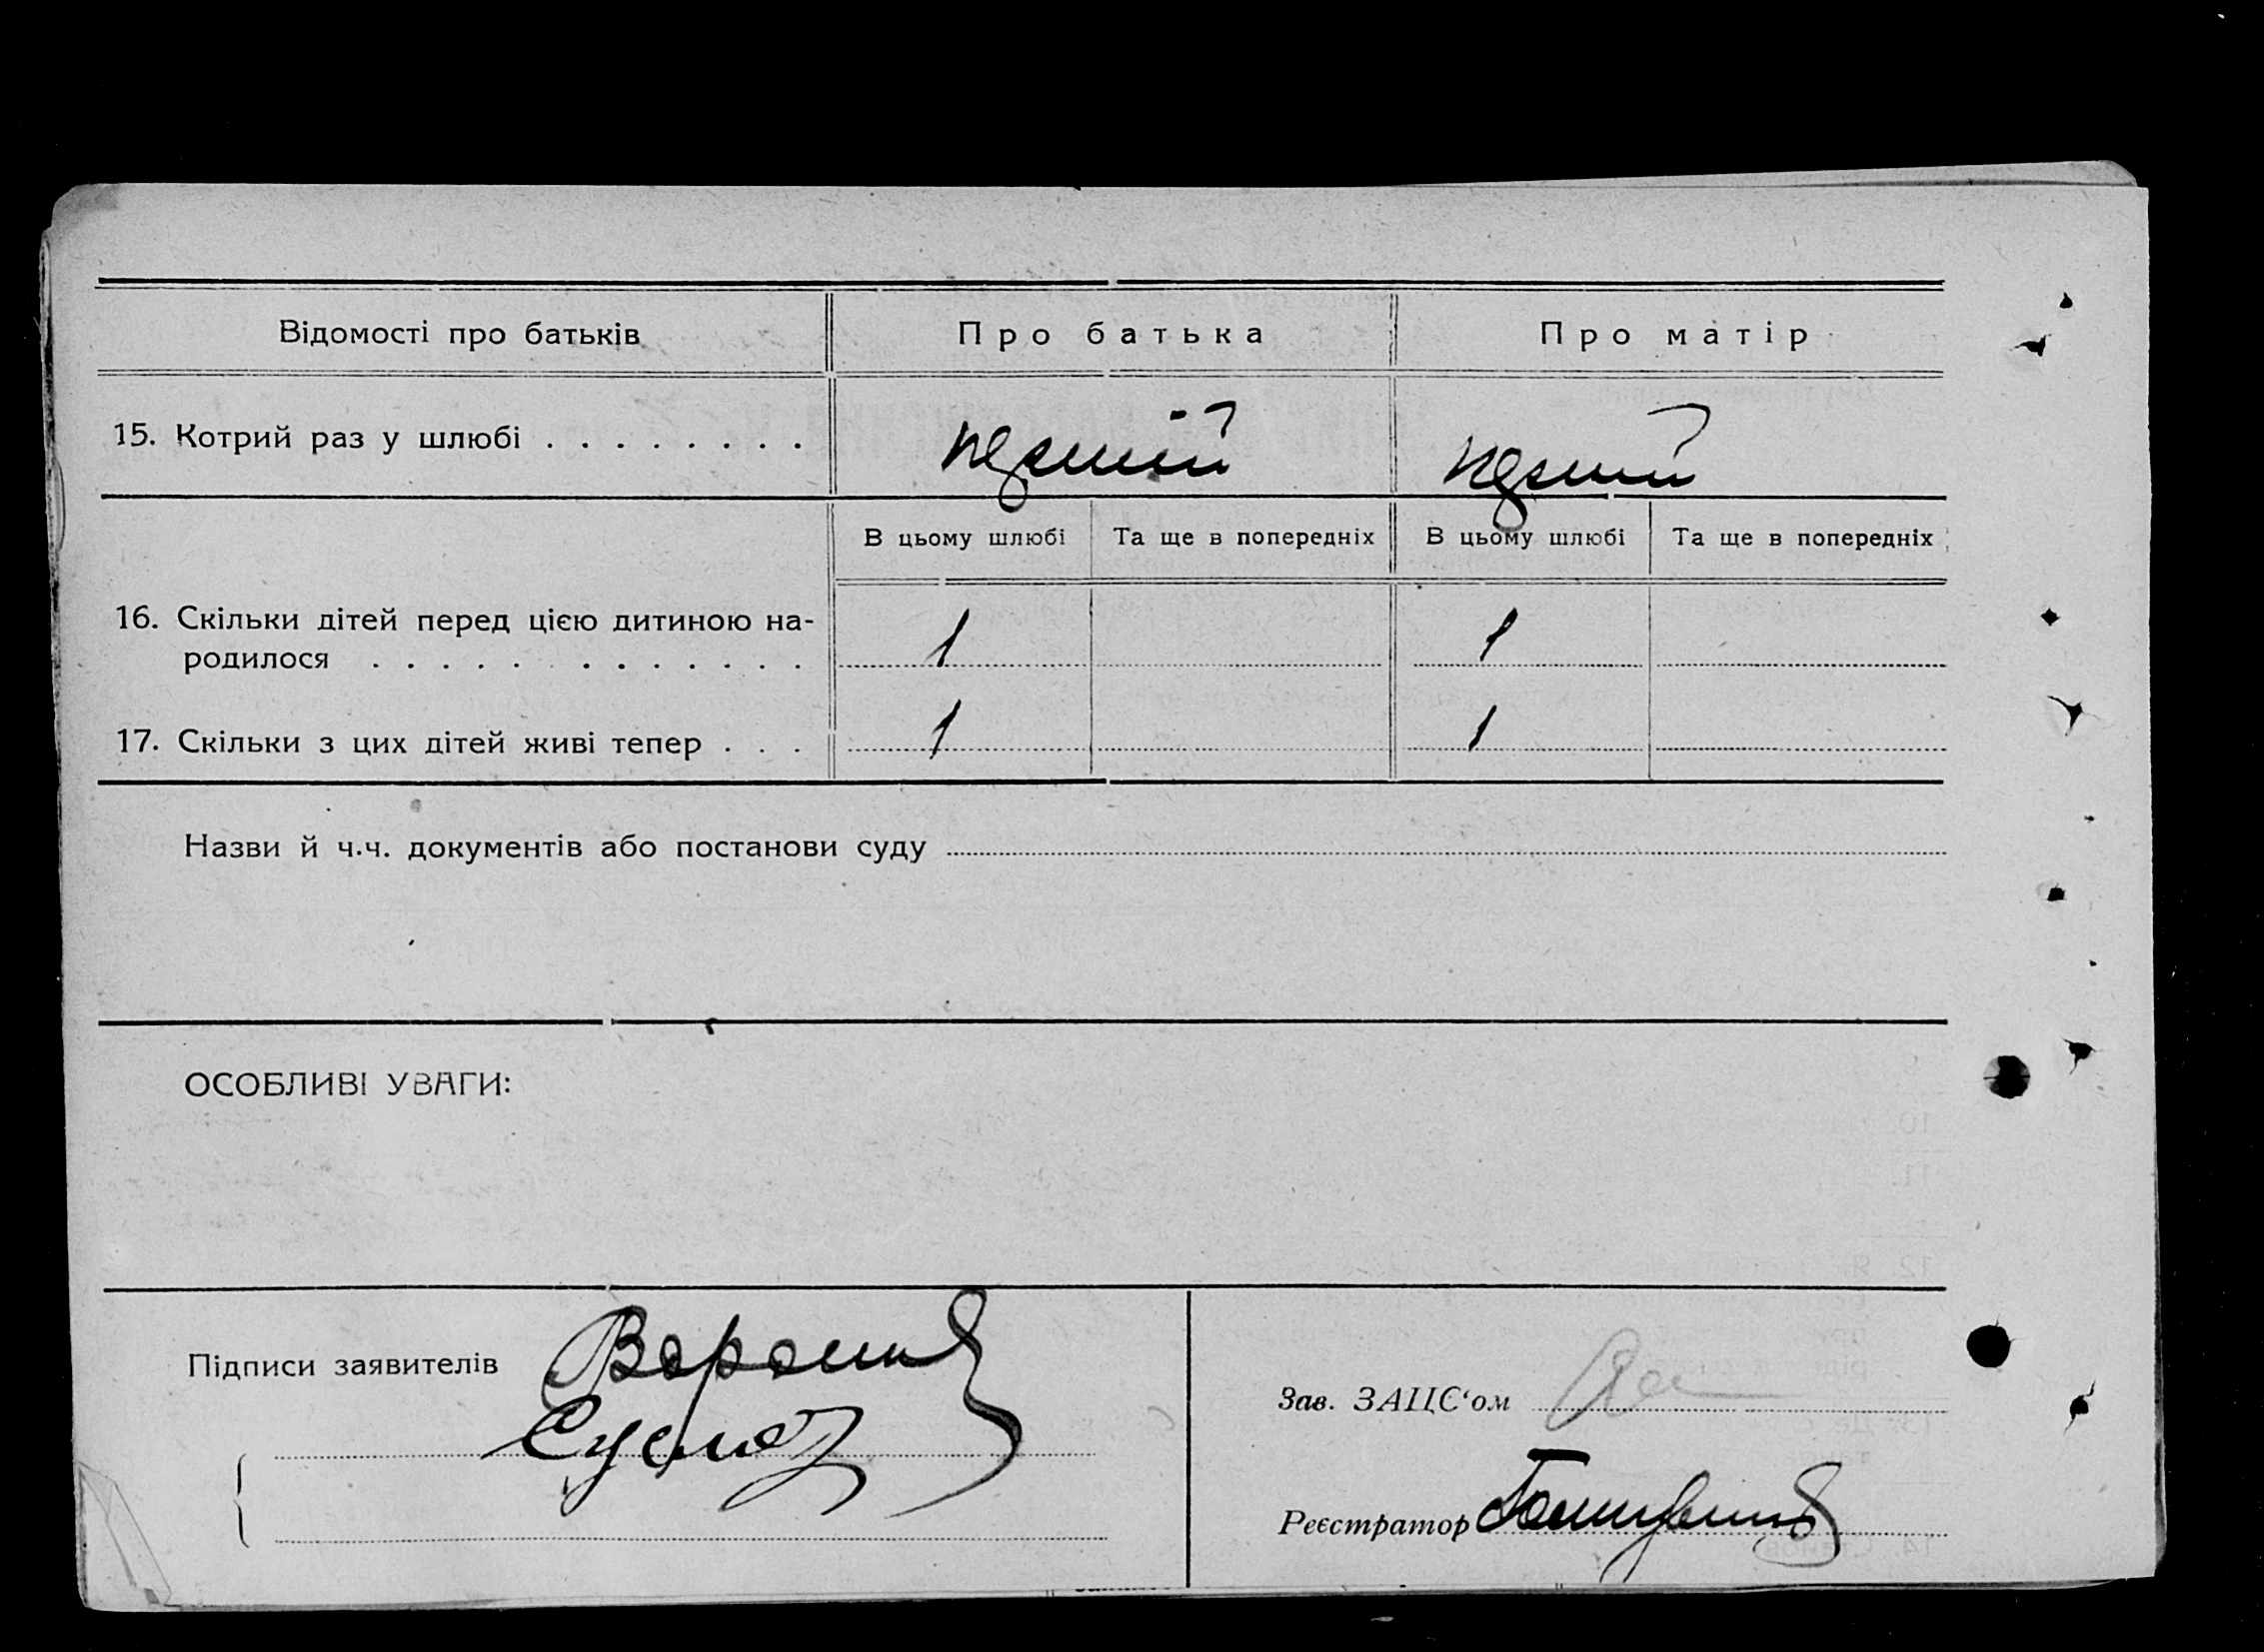 Відомості про батьків
Про батька
Про матір
15. Котрий раз у шлюбі . . . . . . . .
В цьому шлюбі
Та ще в попередніх
В цьому шлюбі
Та ще в попередніх
16. Скільки дітей перед цією дитиною на-
родилося . . . . . . . . . . . .
1
1
17. Скільки з цих дітей живі тепер . . .
1
1
Назви й ч.ч. документів або постанови суду
ОСОБЛИВІ УВАГИ:
Підписи заявителів
Зав. ЗАЦС‘ом
Реєстратор